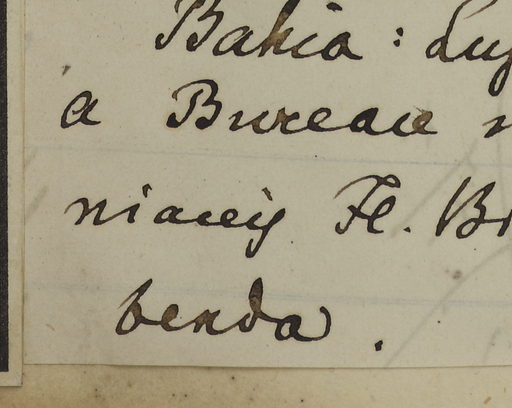 Bahia : Luf
a Bureau n
niaceis Fl. Br
benda .